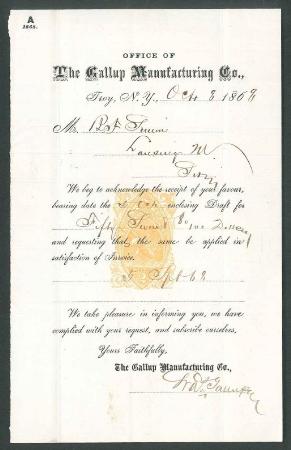 A
1868.
OFFICE OF
The Gallup Manufacturing Co.,
Troy, N. Y., Oct 3 1868
Mr. B F
Lansing M
We beg to acknowledge the receipt of your favour,
bearing date the enclosing Draft for
Fifty 100 Dollars
and requesting that the same be applied in
satisfaction of Invoice.
5 Spt 68
We take pleasure in informing you, we have
complied with your request, and subscribe ourselves,
Yours Faithfully,
The Gallup Manufacturing Co.,